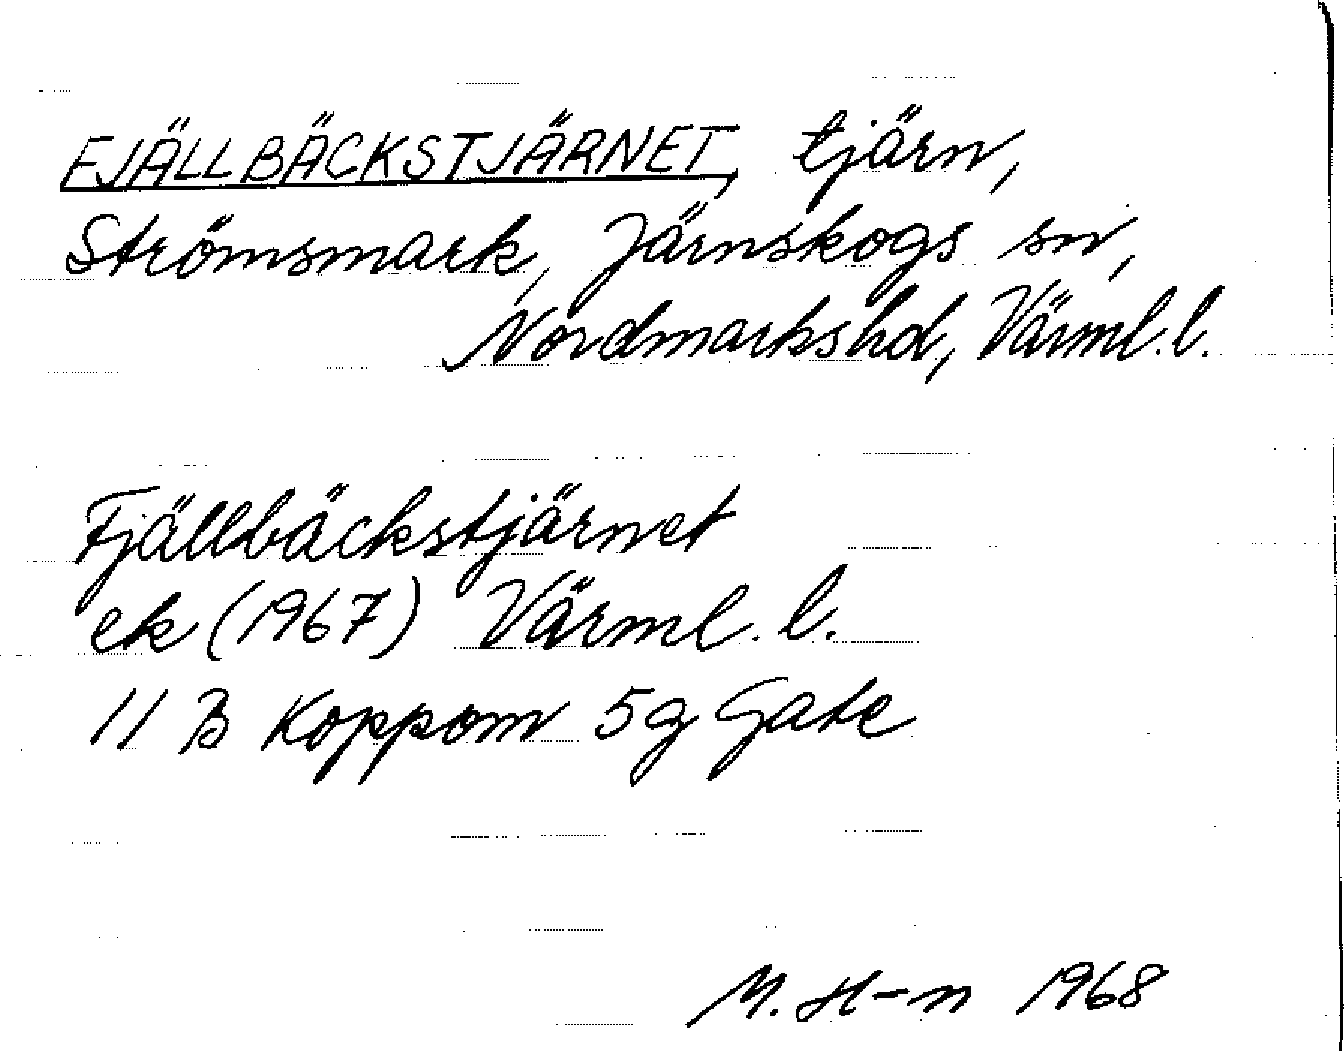 FJÄLLBÄCKSTJÄRNET, tjärn,
Strömsmark, Järnskogs sn,
Nordmarkshd, Värml. l.
Fjällbäckstjärnet
ek (1967) Värml. l.
11 B Koppom 5g Gate
M. H-n 1968